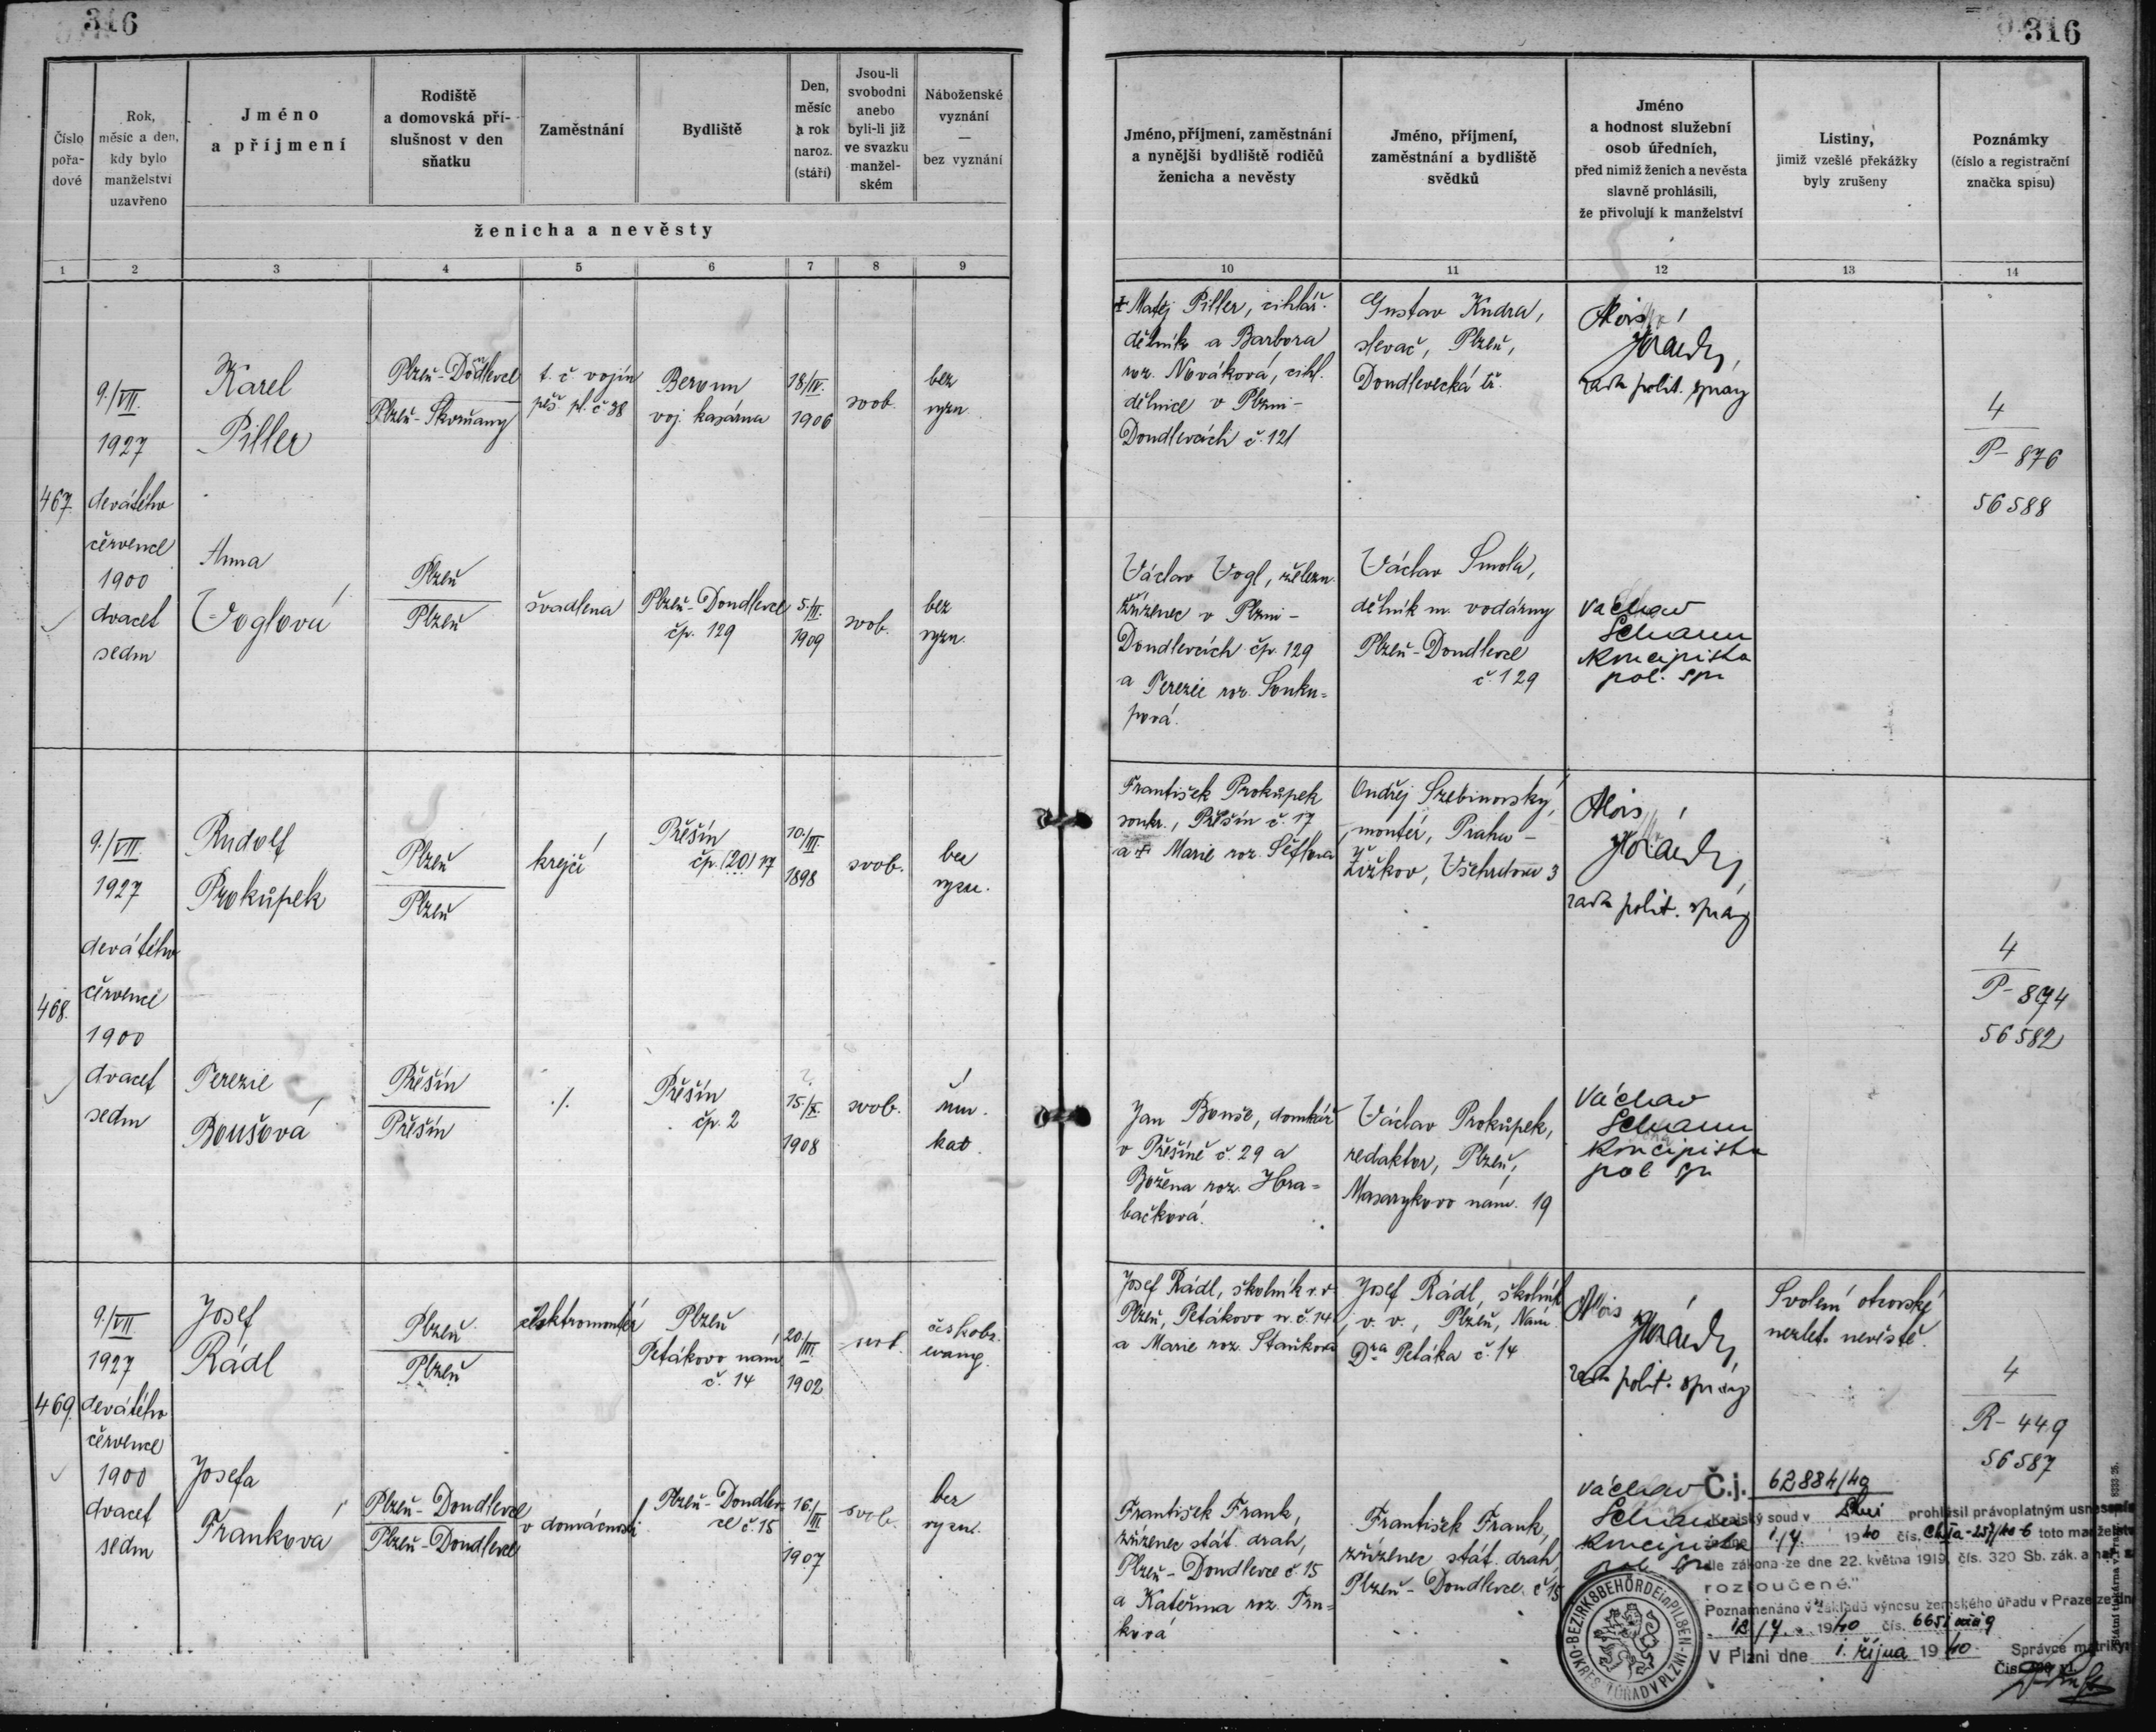 316
316
Číslo pořa- dové
Rok, měsíc a den, kdy bylo manželství uzavřeno
Jméno a příjmení
Rodiště a domovská pří- slušnost v den sňatku
Zaměstnání
Bydliště
Den, měsíc a rok naroz. (stáří)
Jsou-li svobodni anebo byli-li již ve svazku manžel- ském
Náboženské vyznání — bez vyznání
ženicha a nevěsty
Jméno, příjmení, zaměstnání a nynější bydliště rodičů ženicha a nevěsty
Jméno, příjmení, zaměstnání a bydliště svědků
Jméno a hodnost služební osob úředních, před nimiž ženich a nevěsta slavně prohlásili, že přivolují k manželství
Listiny, jimiž vzešlé překážky byly zrušeny
Poznámky (číslo a registrační značka spisu)
1 2 3 4 5 6 7 8 9 10 11 12 13 14
467.
9./VII.
1927
devátého
července
1900
dvacet
sedm
Karel
Piller
Plzeň-Doudlevce
Plzeň-Skvrňany
t. č. vojín
pěš. pl. č 38
Beroun
voj. kasárna
18/IV.
1906
svob.
bez
vyzn.
✝ Matěj Piller, cihlář.
dělník a Barbora
roz. Nováková, cihl.
dělnice v Plzni-
Doudlevcích č. 121
Gustav Kudra,
slevač, Plzeň,
Doudlevecká tř.
Alois
rada polit. správy
4
P- 876
56588
Anna
Voglová
Plzeň
Plzeň
švadlena
Plzeň-Doudlevce
čp. 129
1909
svob.
bez
vyzn.
Václav Vogl, železn.
zřízenec v Plzni-
Doudlevcích čp. 129
a Terezie roz. Souku=
pová.
Václav Smola,
dělník m. vodárny
Plzeň-Doudlevce
č. 129
Václav
Schann
koncipista
pol. spr
468.
9./VII.
1927
devátého
července
1900
dvacet
sedm
Rudolf
Prokůpek
Plzeň
Plzeň
krejčí
Příšín
čp. (20) 17
10./III.
1898
svob.
bez
vyzn.
František Prokůpek
soukr., Příšín č. 17
a ✝ Marie roz. Šéflová
Ondřej Szebinovský,
montér, Praha-
Žižkov, Všehrdova 3
Alois
rada polit. správy
4
P- 874
56582
Terezie
Boušová
Příšín
Příšín
./.
Příšín
čp. 2
15/X.
1908
svob.
řím.
kat.
Jan Bouše, domkář
v Příšíně č. 29 a
Božena roz. Hra=
bačková.
Václav Prokůpek,
redaktor, Plzeň,
Masarykovo nám. 19
Václav
Schann
koncipista
pol spr
469.
9./VII
1927
devátého
července
1900
dvacet
sedm
Josef
Rádl
Plzeň
Plzeň
elektromontér
Plzeň
Petákovo nám.
č. 14
20./III.
1902
svob.
českobr.
evang.
Josef Rádl, školník v. v.
Plzeň, Petákovo n. č. 14
a Marie roz. Staňková
Josef Rádl, školník
v. v., Plzeň, Nám.
Dra Petáka č. 14
Alois
rada polit. správy
Svolení otcovské
nezlet. nevěstě.
4
R- 449
56587
Josefa
Franková
Plzeň-Doudlevce
Plzeň-Doudlevce
v domácnosti
Plzeň-Doudlev-
ce č. 15
16./III
1907
svob.
bez
vyzn.
František Frank,
zřízenec stát. drah,
Plzeň-Doudlevce č. 15
a Kateřina roz. Trn=
ková
František Frank,
zřízenec stát. drah
Plzeň-Doudlevce č 15
Václav
Schann
koncipista
pol. spr
Č.j. 62884/40
Krajský soud v prohlásil právoplatným usnesením
1940 čís. toto manželství
dle zákona ze dne 22. května 1919, čís. 320 Sb. zák. a nař. za
rozloučené."
Poznamenáno v základě výnosu zemského úřadu v Praze ze dne
1940 čís.
V Plzni dne 1. října 1940
Správce matriky:
BEZIRKSBEHÖRDE in PILSEN
OKRES. ÚŘAD V PLZNI